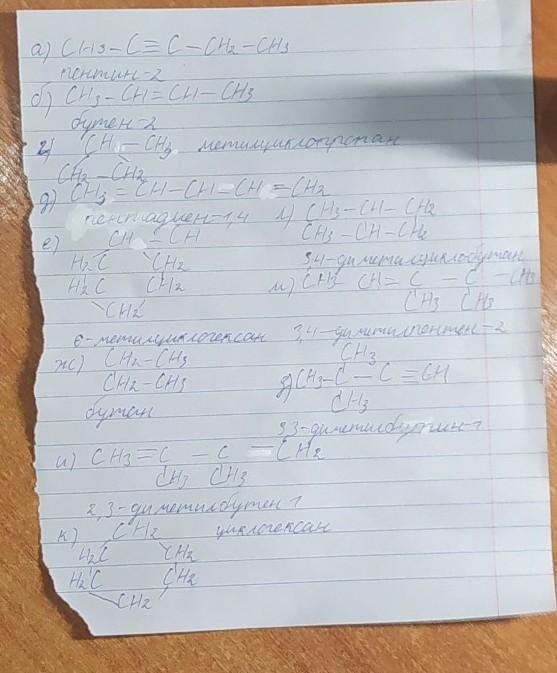 а) CH3-C≡C-CH2-CH3
пентин-2
б) CH3-CH=CH-CH3
бутен-2
г) CH-CH3 метилциклопропан
CH2-CH2
д) CH3=CH-CH-CH=CH2
пентадиен-1,4
л) CH3-CH-CH2
CH3-CH-CH2
3,4-диметилциклобутан
е) CH-CH
H2C CH2
H2C CH2
CH2
6-метилциклогексан
м) CH3 CH=C-C-CH3
CH3 CH3
3,4-диметилпентен-2
ж) CH2-CH3
CH2-CH3
бутан
CH3
з) CH3-C-C≡CH
CH3
3,3-диметилбутин-1
и) CH3=C-C=CH2
CH3 CH3
2,3-диметилбутен 1
к) CH2 циклогексан
H2C CH2
H2C CH2
CH2